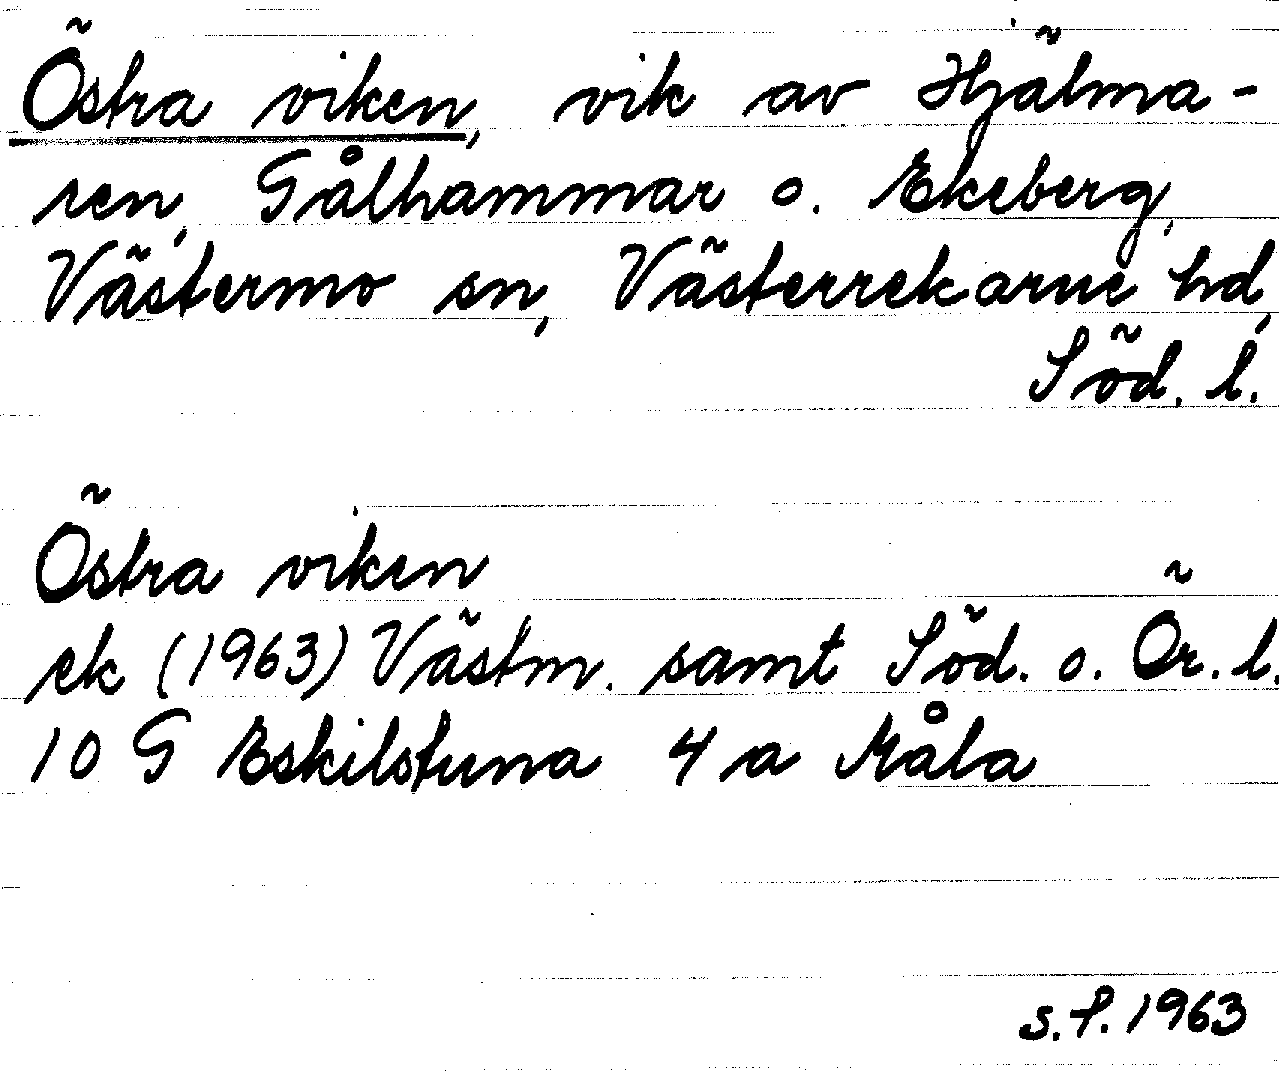 Östra viken, vik av Hjälma-
ren, Gålhammar o. Ekeberg,
Västermo sn, Västerrekarne hd,
Söd. l.
Östra viken
ek (1963) Västm. samt Söd. o. Ör. l.
10 G Eskilstuna 4 a Måla
S.P. 1963